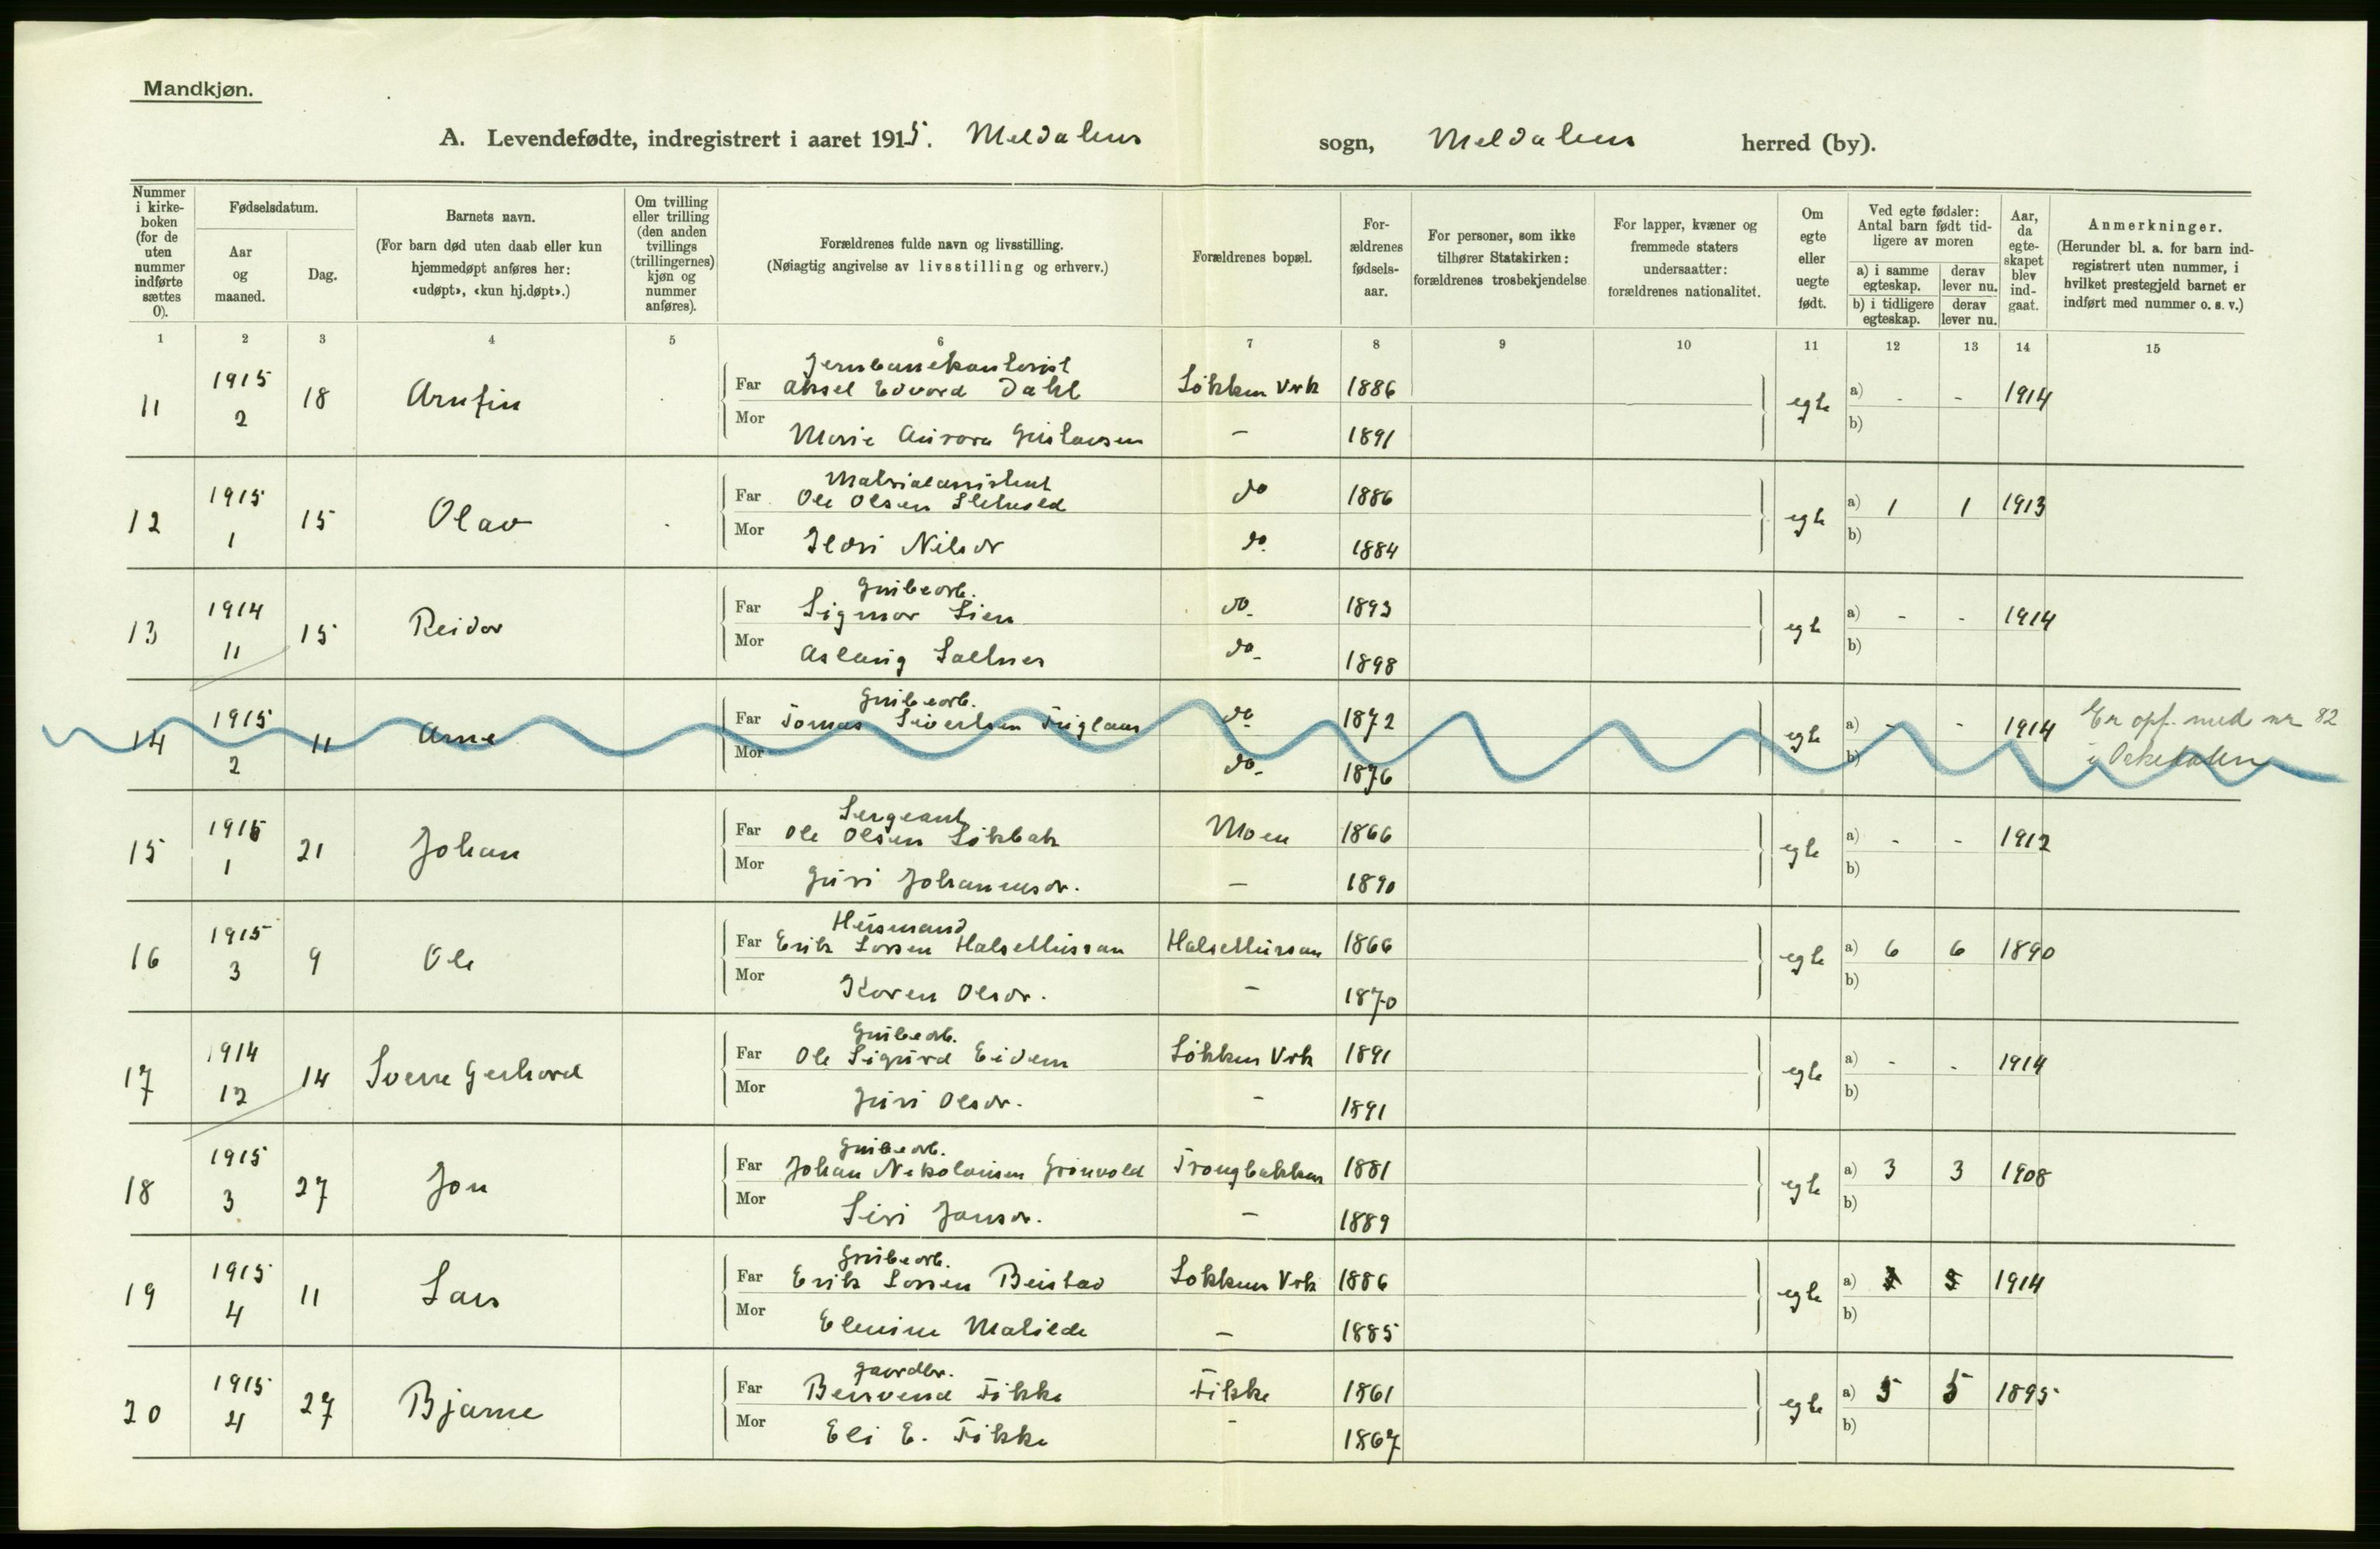 Mandkjøn.
A. Levendefødte, indregistrert i aaret 1915. Meldalens sogn, Meldalens herred (by).
Nummer i kirke-boken (for de uten nummer indførte sættes 0).
Fødselsdatum.
Aar og maaned.
Dag.
Barnets navn.
(For barn død uten daab eller kun hjemmedøpt anføres her: «udøpt», «kun hj.døpt».)
Om tvilling eller trilling (den anden tvillings (trillingernes) kjøn og nummer anføres).
Forældrenes fulde navn og livsstilling.
(Nøiagtig angivelse av livsstilling og erhverv.)
Forældrenes bopæl.
For-ældrenes fødsels-aar.
For personer, som ikke tilhører Statskirken: forældrenes trosbekjendelse
For lapper, kvæner og fremmede staters undersaatter: forældrenes nationalitet.
Om egte eller uegte født.
Ved egte fødsler: Antal barn født tid-ligere av moren
a) i samme egteskap.
derav lever nu.
b) i tidligere egteskap.
derav lever nu.
Aar, da egte-skapet blev ind-gaat.
Anmerkninger.
(Herunder bl. a. for barn ind-registrert uten nummer, i hvilket prestegjeld barnet er indført med nummer o. s. v.)
1 2 3 4 5 6 7 8 9 10 11 12 13 14 15
Jernbanekontorist
11 1915 2 18 Arnfin Far Aksel Edvard Dahl Løkken Vrk 1886 egte a) - - 1914
Mor Marie Aurora Gustavsen - 1891 b)
Materialassistent
12 1915 1 15 Olav Far Ole Olsen do 1886 egte a) 1 1 1913
Mor Ildri Nilsdr do 1884 b)
Grubearb.
13 1914 11 15 Reidar Far Sigmar Lien do 1893 egte a) - - 1914
Mor Aslaug Sollnes do 1898 b)
Grubearb.
14 1915 2 11 Arne Far Tomas Sivertsen Fuglaas do 1872 egte a) - - 1914 Er opf. med nr 82
Mor do 1876 b) i Orkedalen
Sergeant
15 1915 1 21 Johan Far Ole Olsen Løkbak Moen 1866 egte a) - - 1912
Mor Guri Johannesdr. - 1890 b)
Husmand
16 1915 3 9 Ole Far Erik Larsen Halsethussan Halsethussan 1866 egte a) 6 6 1890
Mor Karen Olsdr. - 1870 b)
Grubearb.
17 1914 12 14 Sverre Gerhard Far Ole Sigurd Eidem Løkken Vrk 1891 egte a) - - 1914
Mor Guri Olsdr. - 1891 b)
Grubearb.
18 1915 3 27 Jon Far Johan Nikolaisen Grønvold Trongbakken 1881 egte a) 3 3 1908
Mor Siri Jonsdr. - 1889 b)
Grubearb.
19 1915 4 11 Lars Far Erik Larsen Løkken Vrk 1886 egte a) 1914
Mor Elenine Matilde - 1885 b)
Gaardbr.
20 1915 4 27 Bjarne Far Fikke 1861 egte a) 5 5 1895
Mor Eli E. Fikke - 1867 b)